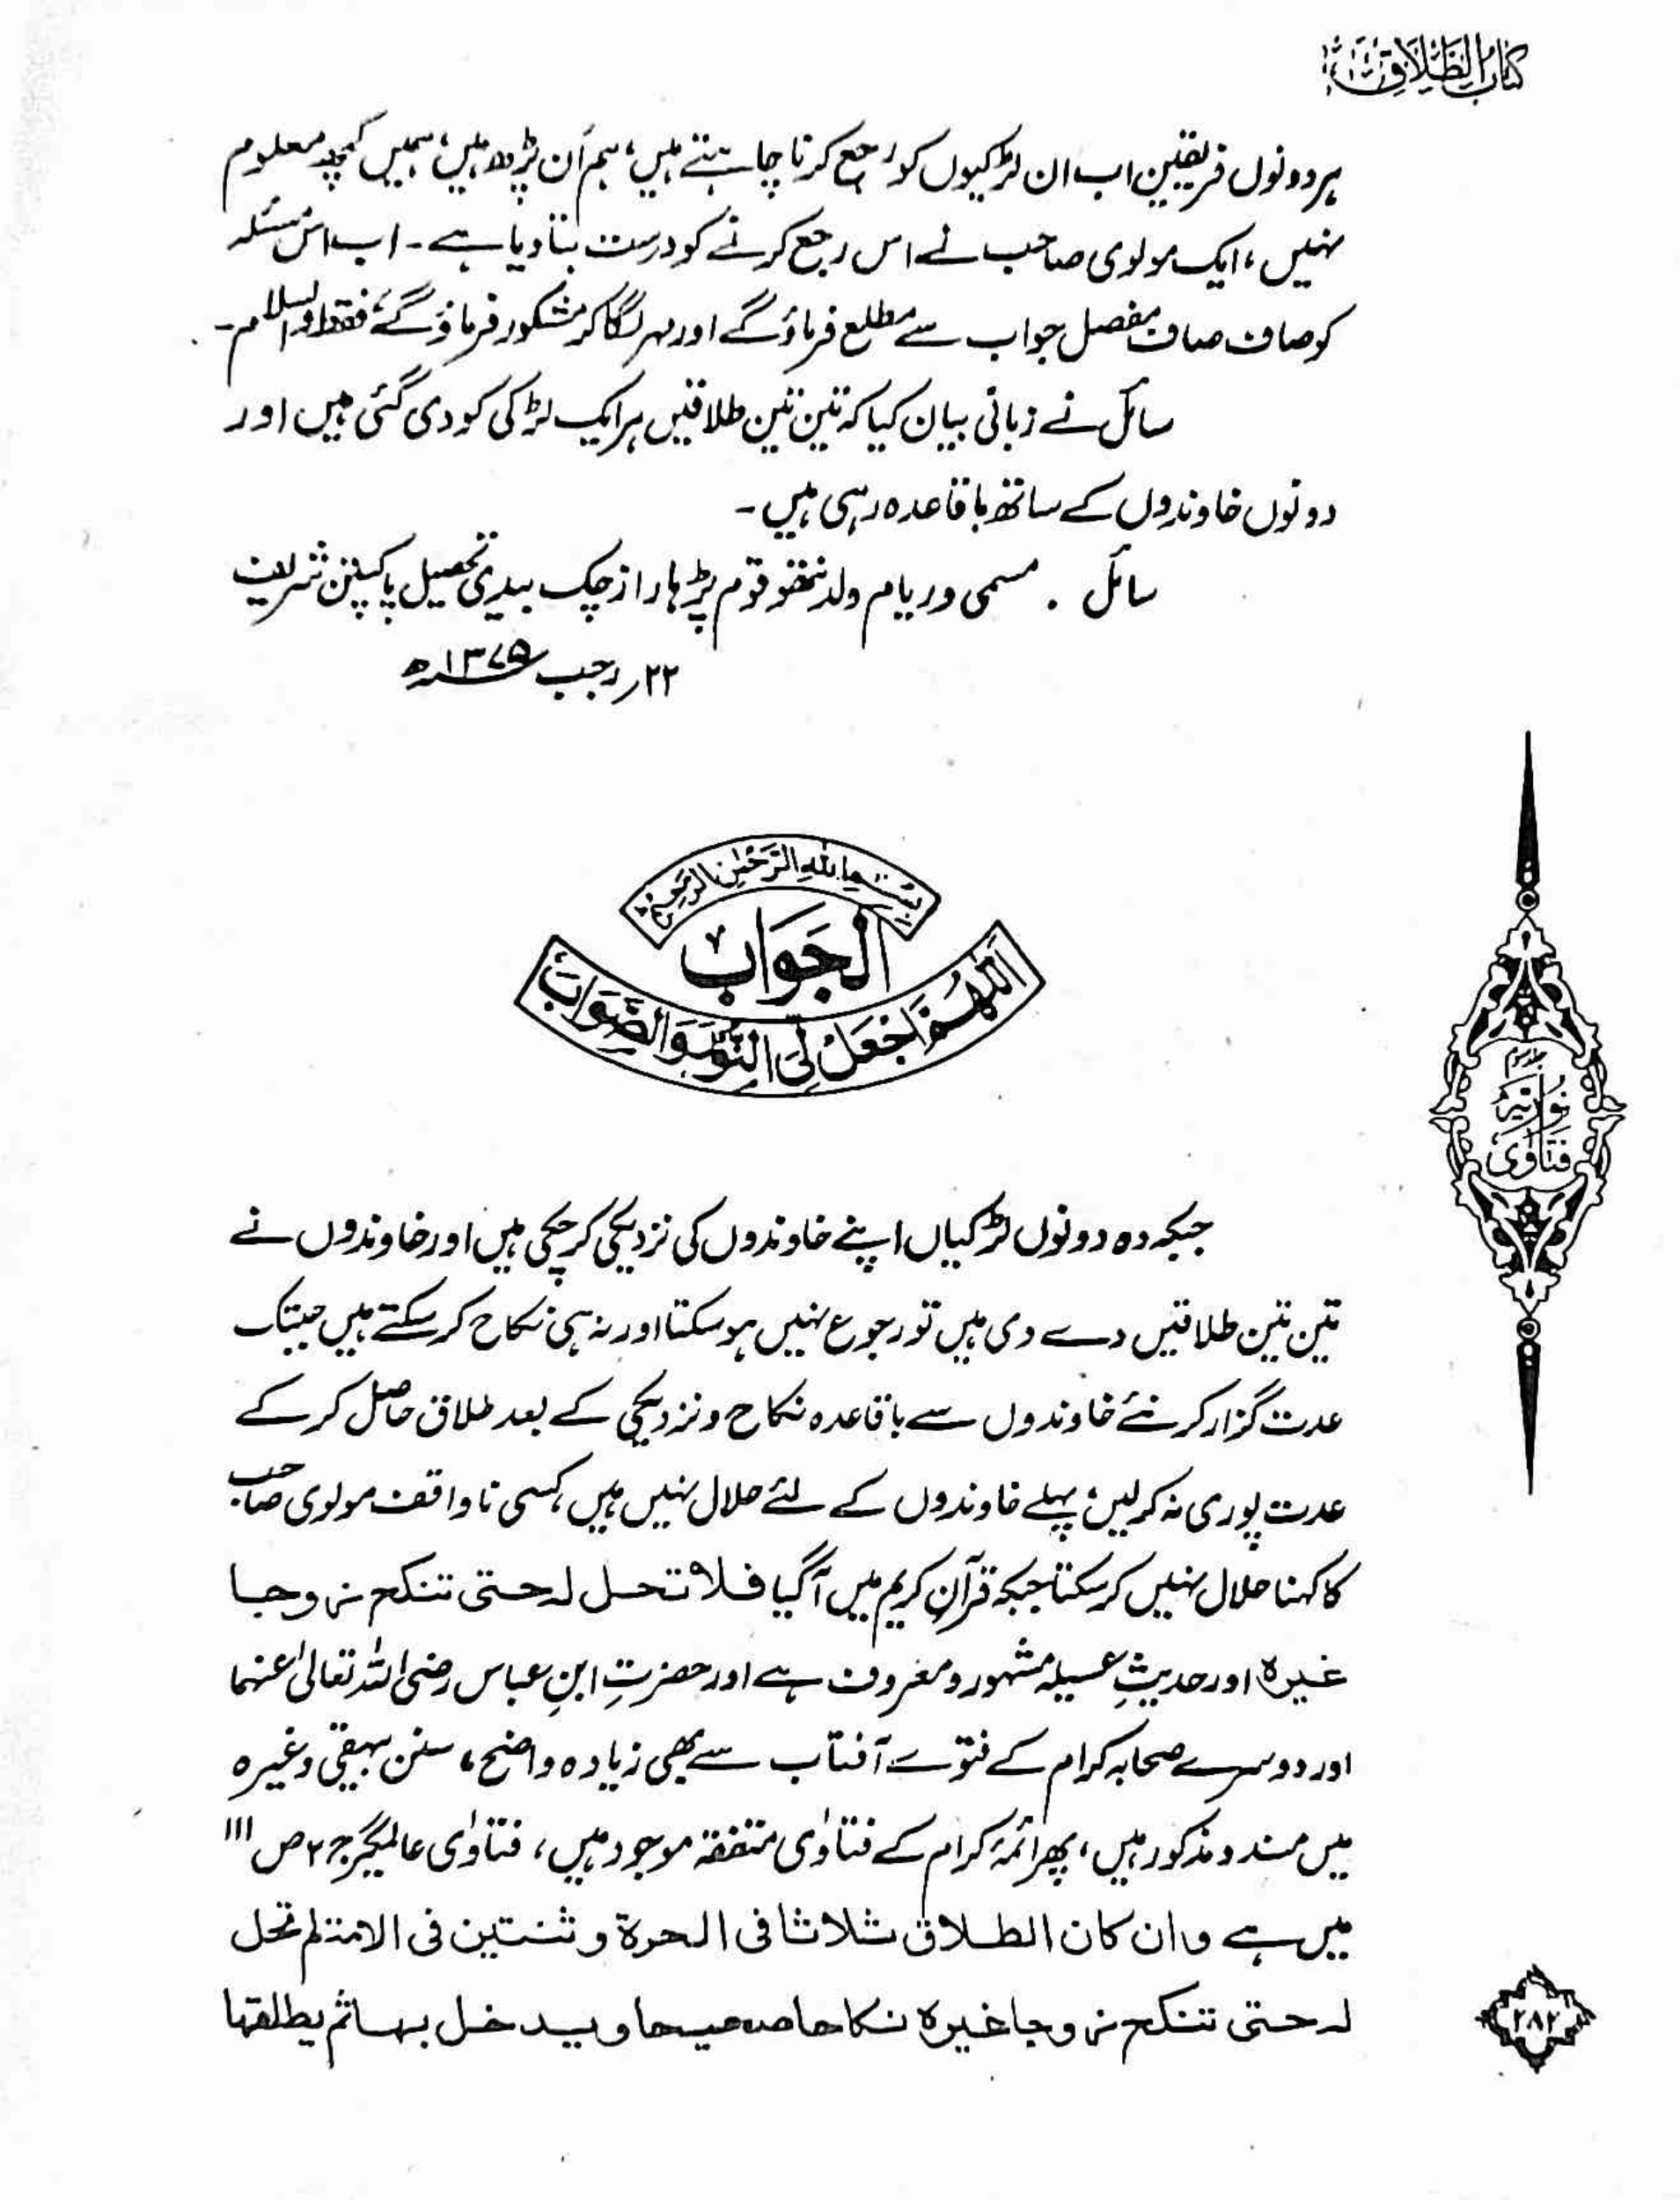 کتاب الطلاق
ہر دونوں فریقین اب ان لڑکیوں کو رجع کرنا چاہتے ہیں، ہم اَن پڑھ ہیں، ہمیں کچھ معلوم
نہیں، ایک مولوی صاحب نے اس رجع کرنے کو درست بتا دیا ہے۔ اب اس مسئلہ
کو صاف صاف مفصل جواب سے مطلع فرماؤ گے اور مہر لگا کر مشکور فرماؤ گے، فقط والسلام۔
سائل نے زبانی بیان کیا کہ تین تین طلاقیں ہر ایک لڑکی کو دی گئی ہیں اور
دونوں خاوندوں کے ساتھ باقاعدہ رہی ہیں۔
سائل . مسمی وریام ولد نتھو قوم پڑہار از چک بیدی تحصیل پاکپتن شریف
۲۲ رجب ۱۳۷۹ھ
بِسْمِ اللهِ الرَّحْمٰنِ الرَّحِيْمِ
الْجَوَابُ
اَللّٰهُمَّ اجْعَلْ لِيَ النُّوْرَ وَالصَّوَابَ
جبکہ وہ دونوں لڑکیاں اپنے خاوندوں کی نزدیکی کر چکی ہیں اور خاوندوں نے
تین تین طلاقیں دے دی ہیں تو رجوع نہیں ہو سکتا اور نہ ہی نکاح کر سکتے ہیں جبتک
عدت گزار کر نئے خاوندوں سے باقاعدہ نکاح و نزدیکی کے بعد طلاق حاصل کر کے
عدت پوری نہ کر لیں، پہلے خاوندوں کے لئے حلال نہیں ہیں، کسی ناواقف مولوی صاحب
کا کہنا حلال نہیں کر سکتا جبکہ قرآنِ کریم میں آ گیا فلا تحل لہ حتی تنکح زوجا
غیرہ اور حدیثِ عسیلہ مشہور و معروف ہے اور حضرتِ ابنِ عباس رضی اللہ تعالیٰ عنہما
اور دوسرے صحابہ کرام کے فتوے آفتاب سے بھی زیادہ واضح، سنن بیہقی وغیرہ
میں مسند و مذکور ہیں، پھر ائمۂ کرام کے فتاوٰی متفقہ موجود ہیں، فتاوٰی عالمگیر ج ۲ ص ۱۱۱
میں ہے وان کان الطلاق ثلاثا فی الحرۃ و ثنتین فی الامۃ لم تحل
لہ حتی تنکح زوجا غیرہ نکاحا صحیحا و یدخل بہا ثم یطلقہا
فتاوٰی نوریہ
۲۸۲